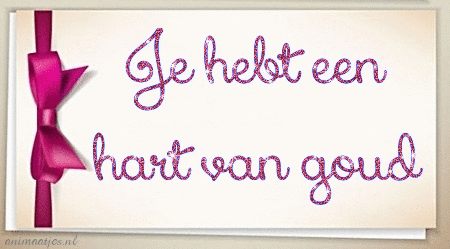 Je hebt een
hart van goud
animaatjes.nl